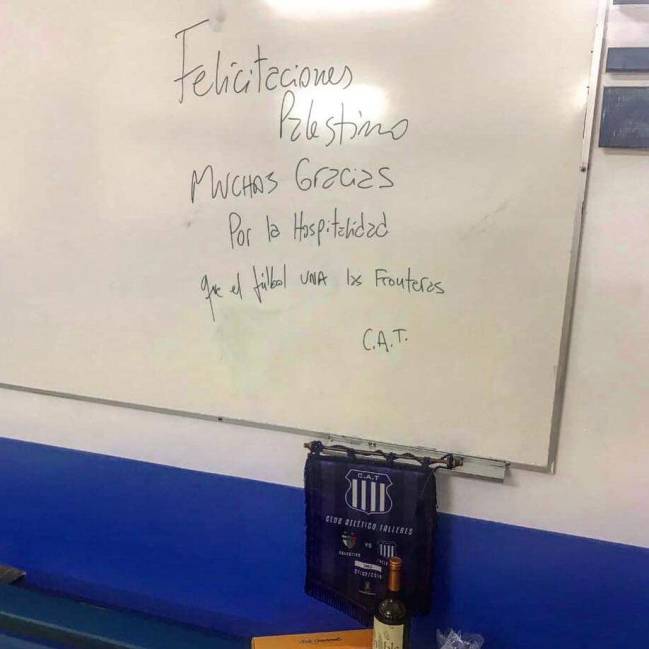 Felicitaciones
Palestino
MUCHAS Gracias
Por la Hospitalidad
que el fútbol UNA las Fronteras
C.A.T.
C.A.T
CLUB ATLÉTICO TALLERES
PALESTINO VS
CHILE